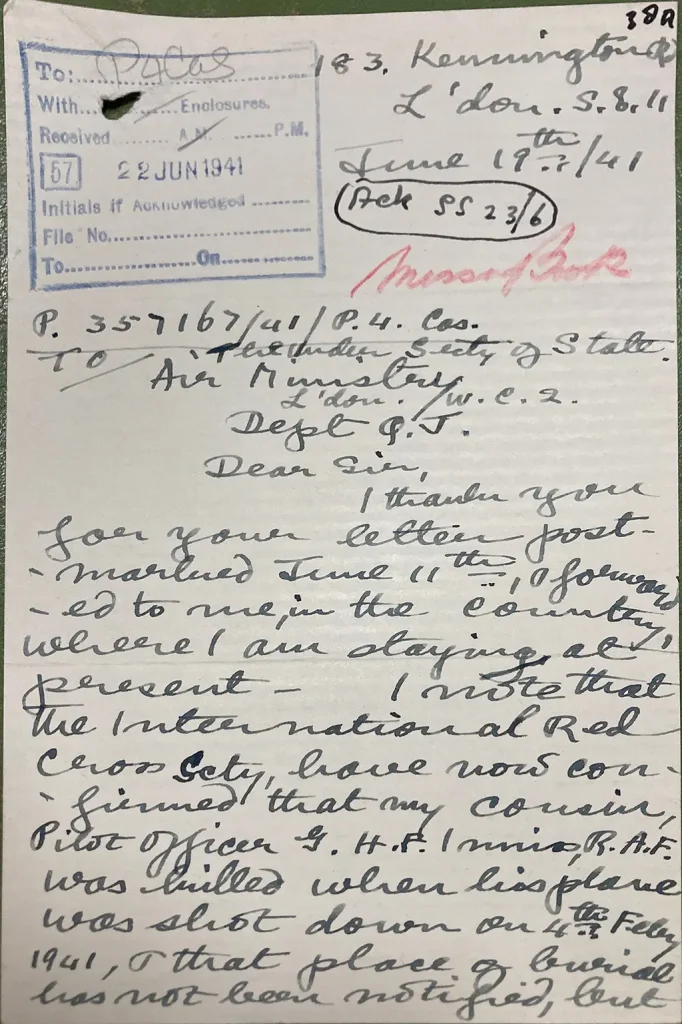 38A
To: P4Cas
With Enclosures.
Received A.M. P.M.
57 22 JUN 1941
Initials if Acknowledged
File No.
To On
183, Kennington Rd
L'don. S.E. 11
June 19th/41
Ack SS 23/6
P. 357167/41/P.4. Cas.
TO/ The Under Secty of State.
Air Ministry
L'don. /W.C.2.
Dept Q.J.
Dear Sir,
I thank you
for your letter post-
-marked June 11th, & forward
-ed to me, in the country,
where I am staying, at
present - I note that
the International Red
Cross Scty, have now con-
-firmed that my cousin,
Pilot Officer G. H. F. Inniss, R.A.F.
was killed when his plane
was shot down on 4th Feby
1941, & that place of burial
has not been notified, but